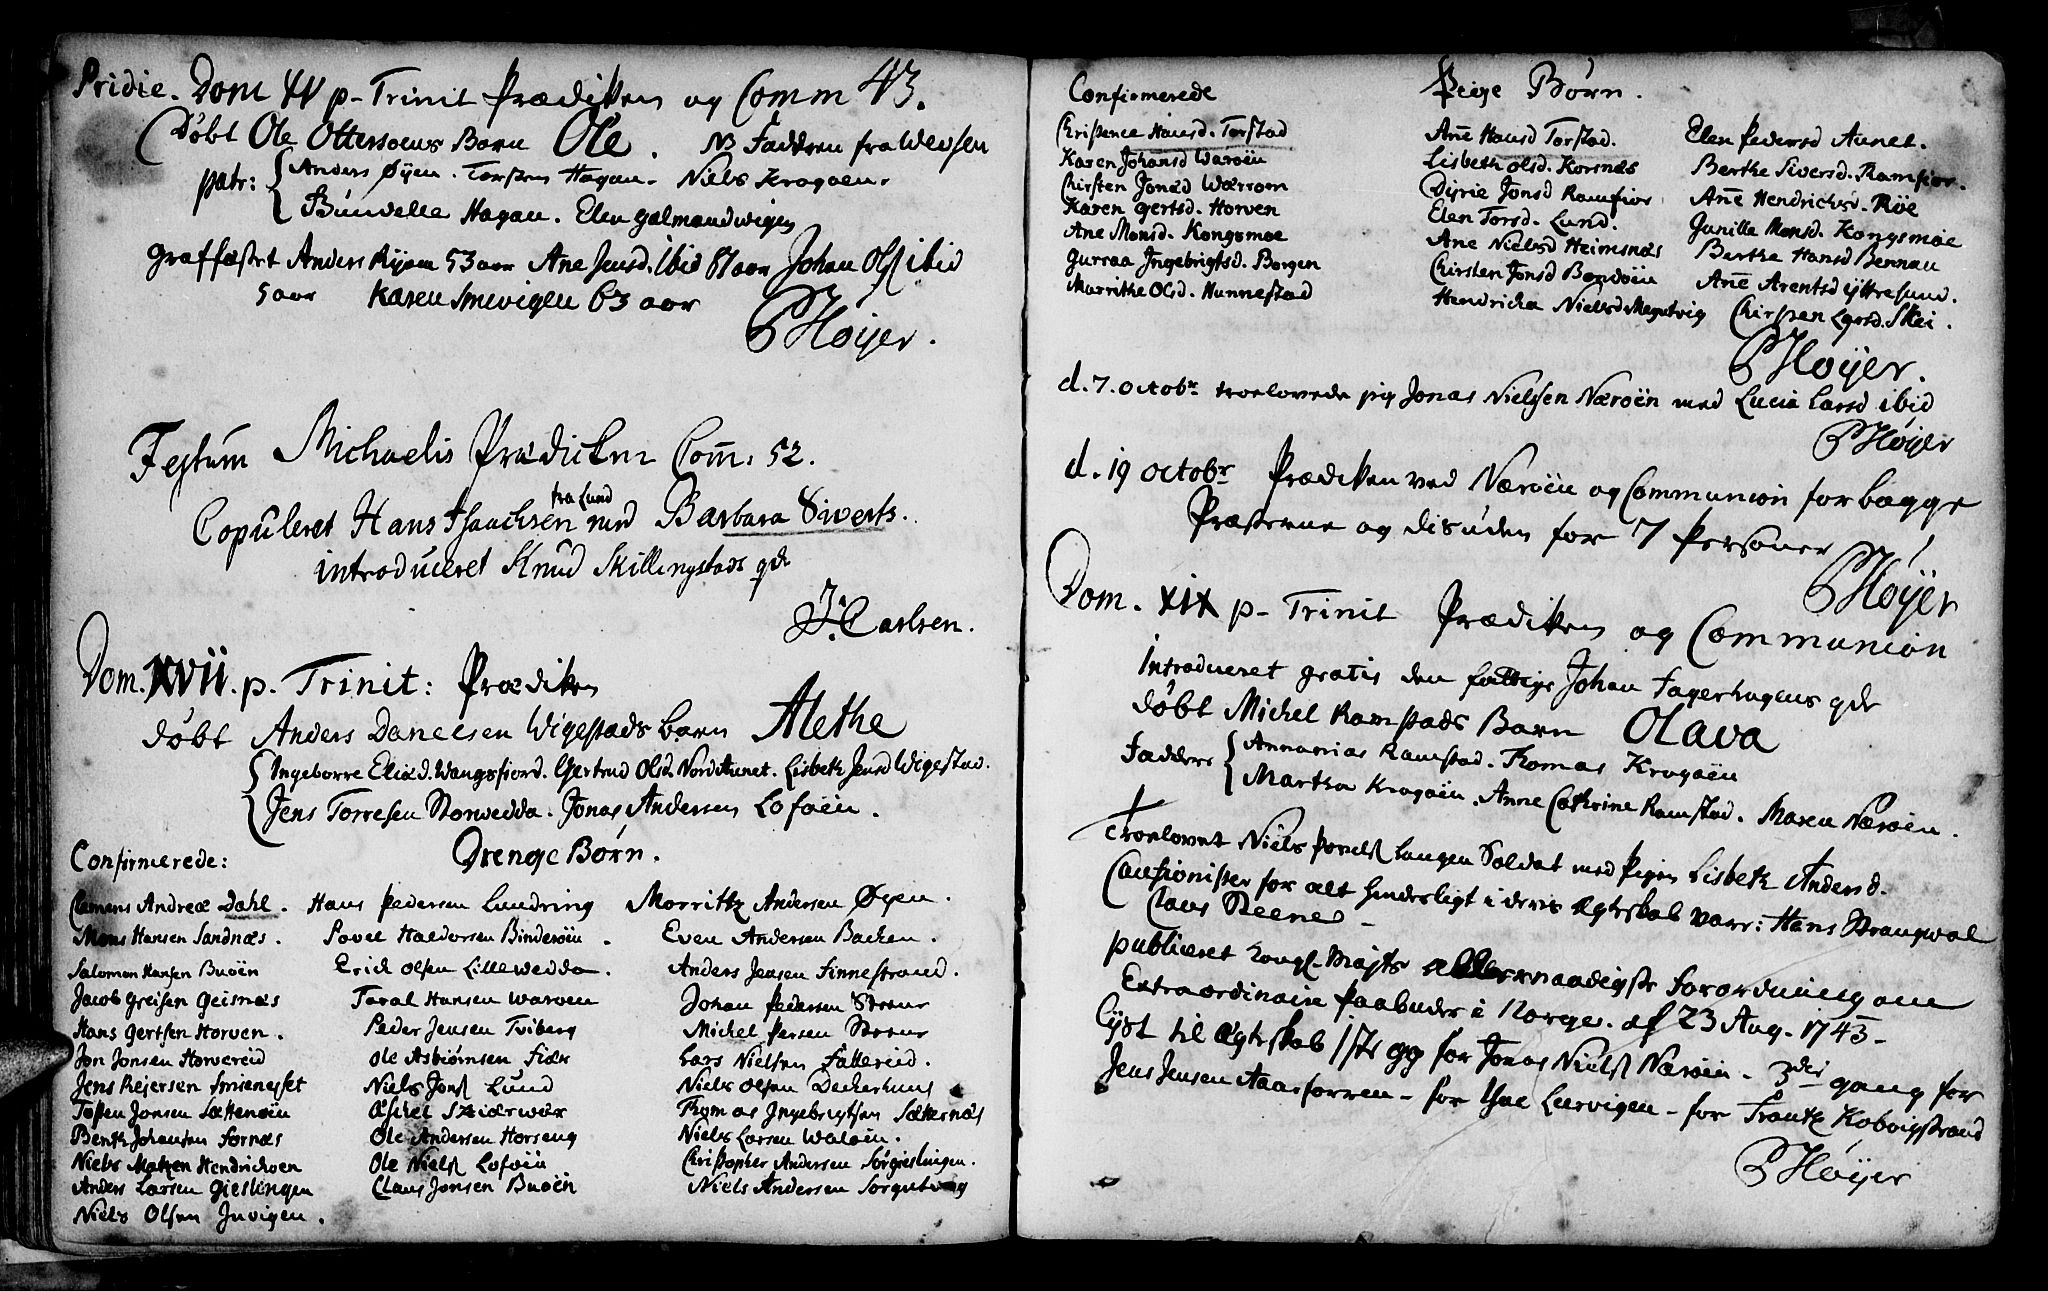 Pridie. Dom p- Trinit Prædiken og Comm 43.
Døbt Ole Ottersoens Barn Ole. NB Faddren fra Wevsen
patr: Anders Øyen. Torsten Hagan. Niels Krogøen.
Hagan. Elen galmandwigen
graffæstet Anders Ryem 53 aar Ane Jensd. ibid 81 aar Johan Ols ibid
5 aar Karen Smevigen 63 aar
PHøijer.
Festum Michaelis Prædicken Com̄: 52.
fra Lund
Copuleret Hans Isaachsen med Barbara Siverts.
introduceret Knud Skillingstads qde
J: Carlsen.
Dom. XVII. p. Trinit: Prædiken
døbt Anders Danielsen Wigestads barn Alethe
Ingeborre Eliæd. Wangsfiord. Gertrud Olsd. NordAunet. Lisbeth Jensd Wigestad.
Jens Torresen Storwedda. Jonas Andersen Loføen.
Confirmerede: Drenge Børn.
Clemens Andreæ Dahl. Hans Pedersen Lundring Morritz Andersen Øyen.
Mons Hansen Sandnæs. Povel Haldorsen Binderøen. Even Andersen Backen.
Salomon Hansen Buøen Erich Olsen Lillewedda. Anders Jensen Finnestrand.
Jacob Greisen Geisnæs Taral Hansen Warøen Johan Pedersen Steene
Hans Gertsen Horven. Peder Jensen Tviberg Michel Persen Steene
Jon Jonsen Horvereid Ole Asbiørnsen Fiær Lars Nielsen Fattereid.
Jens Reiersen Smienesset Niels Jons Lund Niels Olsen Deckerhus
Tosten Jonsen Sættenøen Aschel Skiærvær Thomas Ingebrigtsen Sæternæs
Benth Johansen Fornæs Ole Andersen Horseng Niels Larsen Waløen.
Niels Matzen Hendrichøen Ole Niels Loføen Christopher Andersen Sørgieslingen.
Anders Larsen Gieslingen Claus Jonsen Buøen Niels Andersen
Niels Olsen Invigen.
Confirmerede Peige Børn.
Christence Hansd. Torstad An̄e Hansd Torstad. Elen Pedersd Aunet.
Karen Johansd Warøen Lisbeth Olsd. Korsnæs Berthe Siversd. Ramfior.
Chirsten Jonæd Wærrom Dyrie Jonsd Ramfior An̄e Hendrichsd. Røe
Karen Gertsd. Horven Elen Torsd. Lund. Gunille Monsd. Kongsmoe
Ane Monsd. Kongsmoe Ane Nielsd Heimsnæs Berthe Hansd Bennan
Gurraa Ingebrigtsd. Borgen Chirsten Jonsd Bondøen An̄e Arentsd Yttresund.
Marrithe Olsd. Hunnestad Hendricka Nielsd Chirsten Larsd. Skei.
PHøijer.
d. 7. octobr troelovede jeg Jonas Nielssen Nærøen med Lucia Larsd ibid
PHøijer
d. 19 octobr Prædiken ved Nærøen og Communion for begge
Præsterne og disuden for 7 Personer
PHøijer
Dom. XIX p- Trinit Prædiken og Communion
Introduceret gratis den fattige Johan Fagerhagens qde
døbt Michel Ramstads Barn Olava
Faddere Annanias Ramstad. Thomas Krogøen
Martha Krogøen. Anne Cathrine Ramstad. Maren Nærøen.
troelovet Niels Povels Langen Soldat med Pigen Lisbeth Andersd.
Cautionister for alt hinderligt i deris Ægteskab varr: Hans Strangwol
Claus Steene
publiceret Kongl- Majts allernaadigste Forordning om
Extraordinaire Paabuder i Norge. af 23 Aug. 1743-
Lyst til Ægteskab 1ste gg for Jonas Niels Nærøen- 3die gang for
Jens Jensen Aarforren- for Lurvigen- for Frantz Kobvigstrand
PHøijer